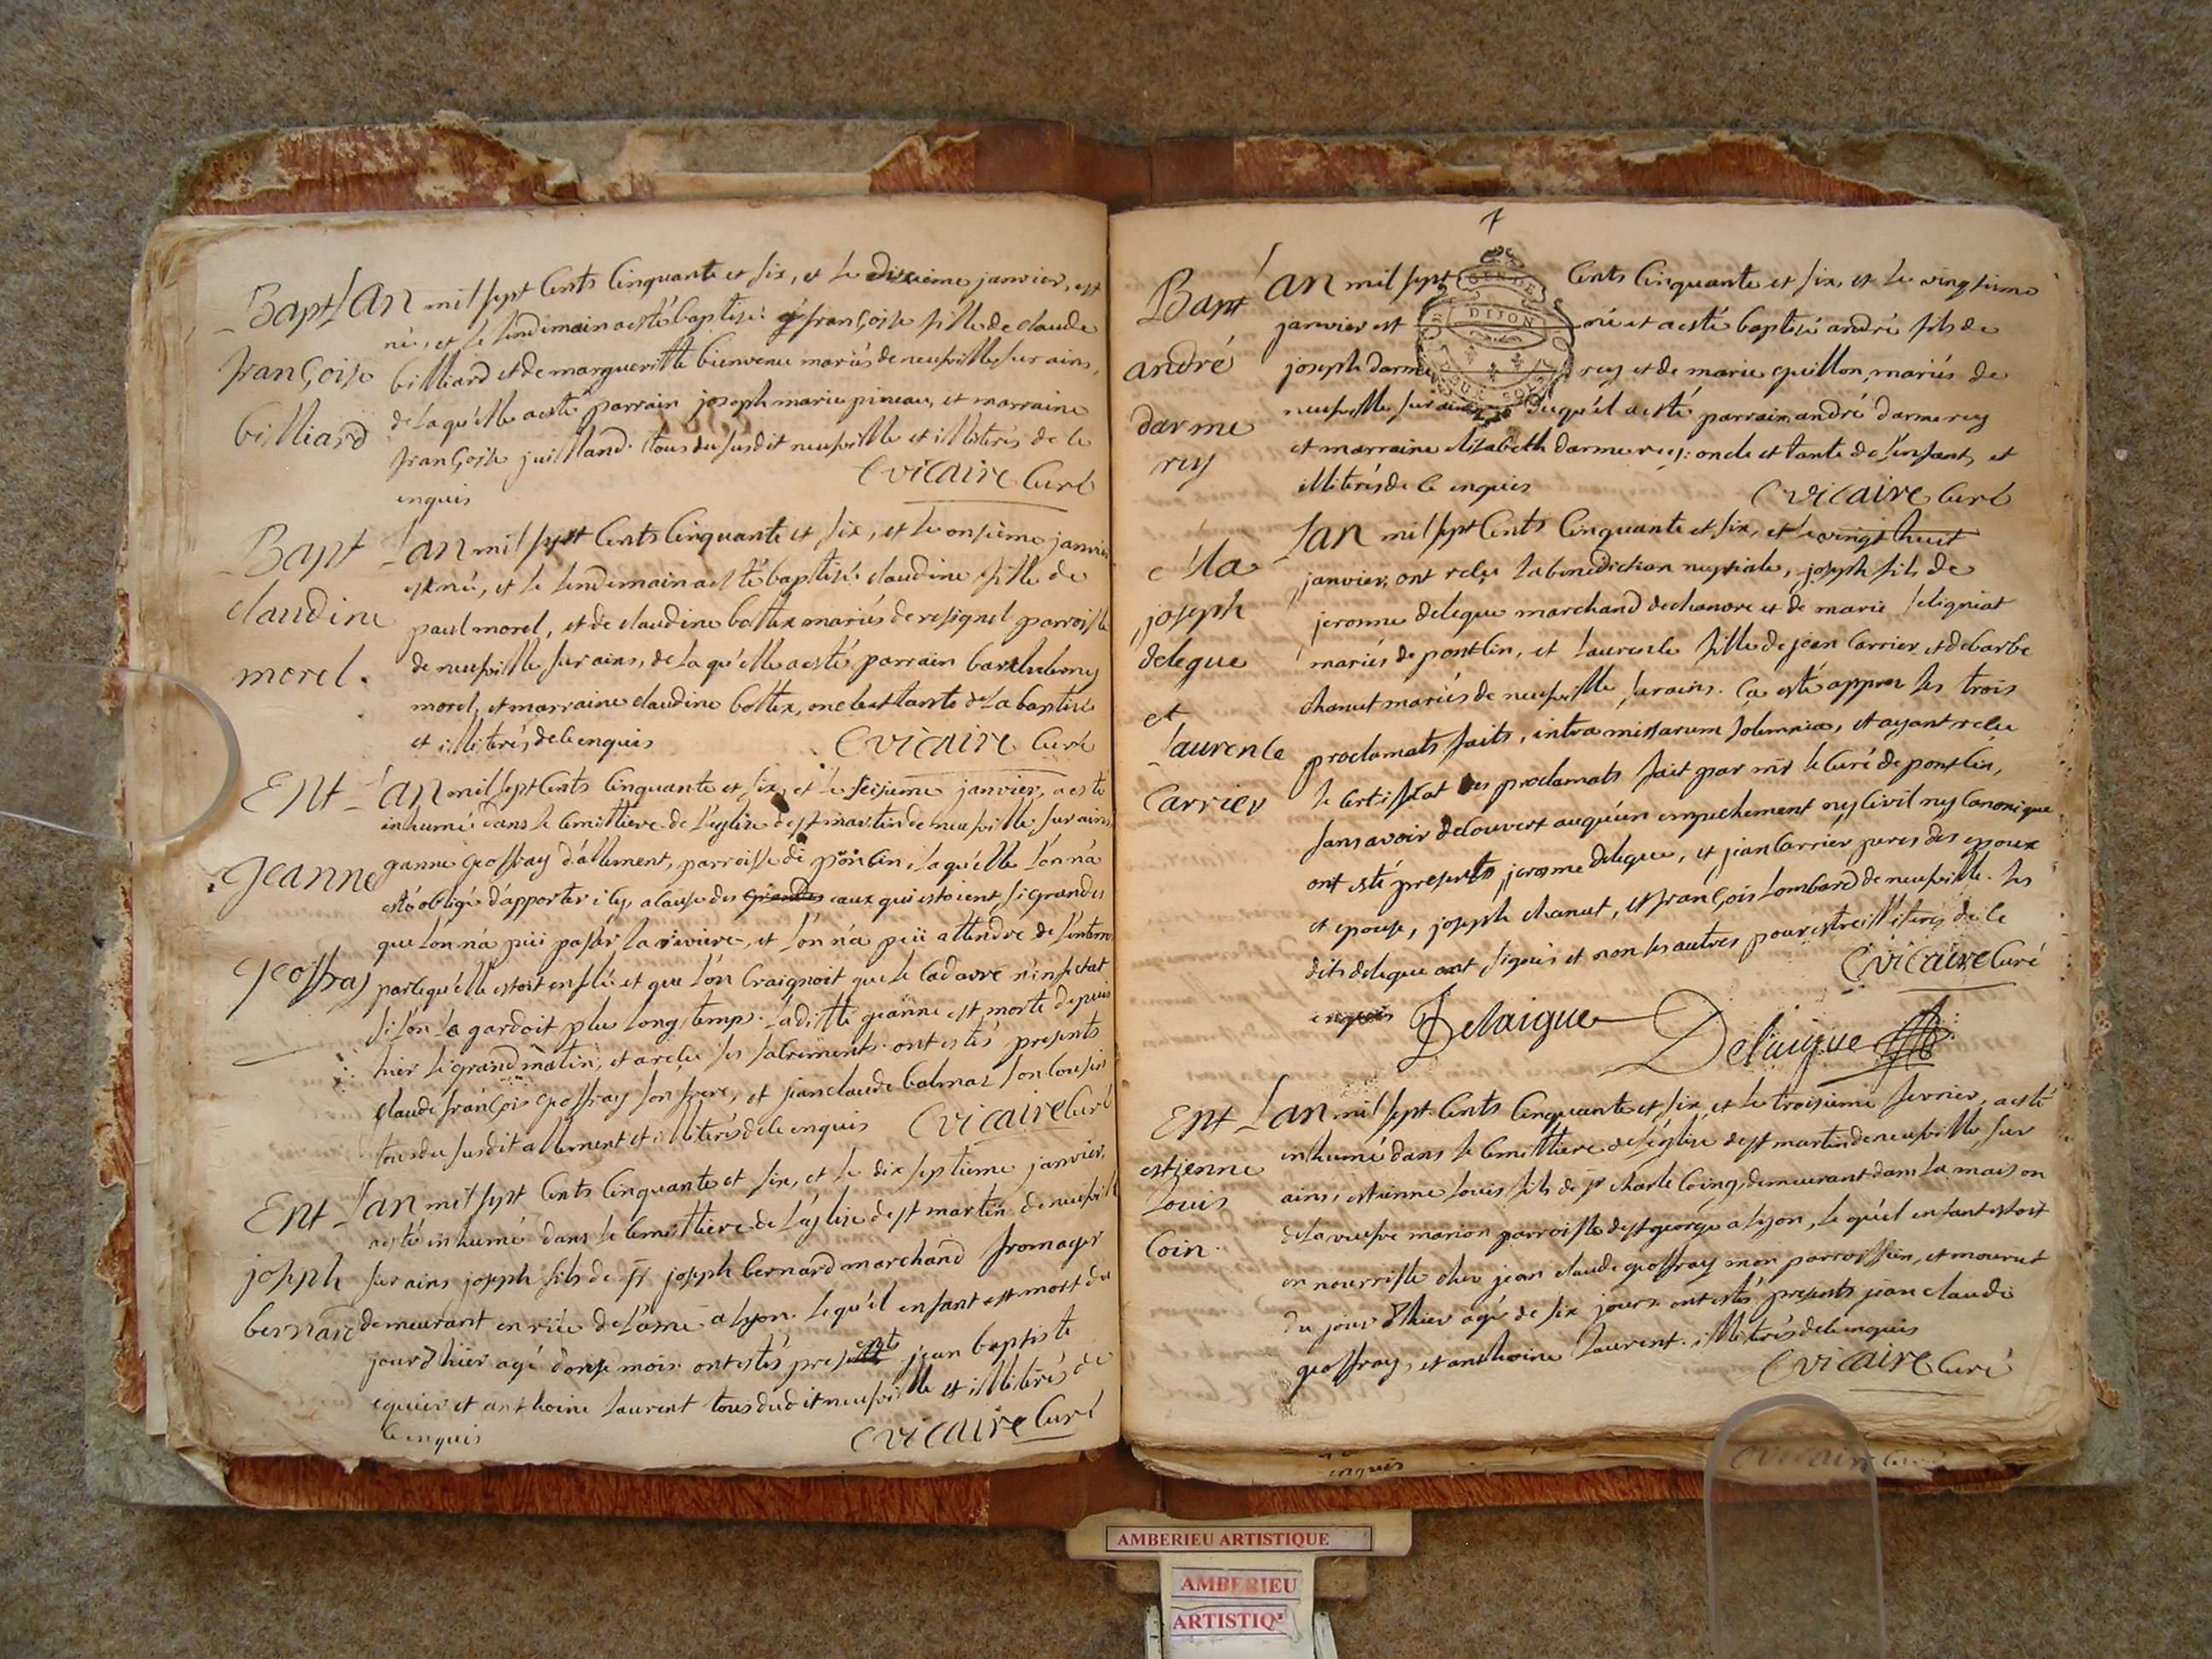 Bapt
françoise
billiard
L'an mil sept cents cinquante et six, et le dixieme janvier, est
né, et le lendemain a esté baptisé françoise fille de claude
billiard et de margueritte bienvenu mariés de neufville sur ains,
de la qu'elle a esté parrain joseph marie pineau, et marraine
françoise juilland. tous du susdit neufville et illiterés de ce
enquis
C vicaire curé
Bapt
claudine
morel.
L'an mil sept cents cinquante et six, et le onsième janvier
est né, et le lendemain a esté baptisé claudine fille de
paul morel, et de claudine bottex mariés de resignel parroisse
de neufville sur ains, de la qu'elle a esté parrain barthelemy
morel, et marraine claudine bottex, oncle et tante de la baptisé
et illiterés de ce enquis
C vicaire curé
Ent
Jeanne
geoffray
L'an mil sept cents cinquante et six, et le seisieme janvier, a esté
inhumé dans le cemittiere de l'eglise de st martin de neufville sur ains,
ganne geoffray d'allement, parroisse de poncin, la qu'elle l'on n'a
esté obligé d'apporter icy, a cause des grandes eaux qui estoient si grandes
que l'on n'a peü passer la riviere, et l'on n'a peü attendre de l'enterr
parcequ'elle estoit enflé et que l'on craignoit que le cadavre n'infectat
si l'on le gardoit plus long temps. laditte jeanne est morte depuis
hier le grand matin, et a reçu les sacrements. ont estés presents
claude françois geoffray son frere, et jean claude balmaz son cousin
tous du susdit allement et illiterés de ce enquis
C vicaire curé
Ent
joseph
bernard
L'an mil sept cents cinquante et six, et le dix septieme janvier,
a esté inhumé dans le cemittiere de l'eglise de st martin de neufville
sur ains joseph fils de sr joseph bernard marchand fromager
demeurant en rüe de l'asne a lyon. le qu'el enfant est mort du
jour d'hier agé d'onse mois. ont estés presents jean baptiste
equier et anthoine laurent tous dudit neufville et illiterés de
ce enquis
C vicaire curé
7
GEN DE
DIJON
Bapt
andré
darme
rey
L'an mil sept cents cinquante et six, et le vingtieme
janvier est né et a esté baptisé andré fils de
joseph darmerey et de marie guillon, mariés de
neufville sur ains duqu'el a esté parrain andré darmerey
et marraine elisabeth darmerey: oncle et tante de l'enfant, et
illiterés de ce enquis
C vicaire curé
joseph
delegue
et
laurence
carrier
L'an mil sept cents cinquante et six, et le vingt huit
janvier, ont reçu la benediction nuptiale, joseph fils de
jeronne delegue marchand de chanvre et de marie seligniat
mariés de pontcin, et laurence fille de jean carrier et de barbe
chanut mariés de neufville sur ains. ça esté apprez les trois
proclamats faits, intra missarum solemnia, et ayant reçu
le certificat des proclamats fait par mr le curé de pontcin,
sans avoir decouvert auqu'un empechement ny civil ny canonique
ont esté presents jerosme delegue, et jean carrier peres des epoux
et epouse, joseph chanut, et françois lombard de neufville. les
dits delegue ont signés et non les autres pour estre illiterés de ce
enquis
C vicaire curé
Delaigue
Delaigue
Ent
estienne
louis
coin.
L'an mil sept cents cinquante et six, et le troisieme fevrier, a esté
inhumé dans le cemittiere de l'églisé de st martin de neufville sur
ains, estienne louis fils de sr charle coing, demeurant dans la maison
de la veufve marion parroisse de st george a lyon, le qu'el enfant estoit
en nourrisse chez jean claude geoffray mon parroissien, et mourut
du jour d'hier agé de six jours. ont estés presents jean claude
geoffray, et anthoine laurent. illiterés de ce enquis
C vicaire curé
enquis
AMBERIEU ARTISTIQUE
AMBERIEU
ARTISTIQ